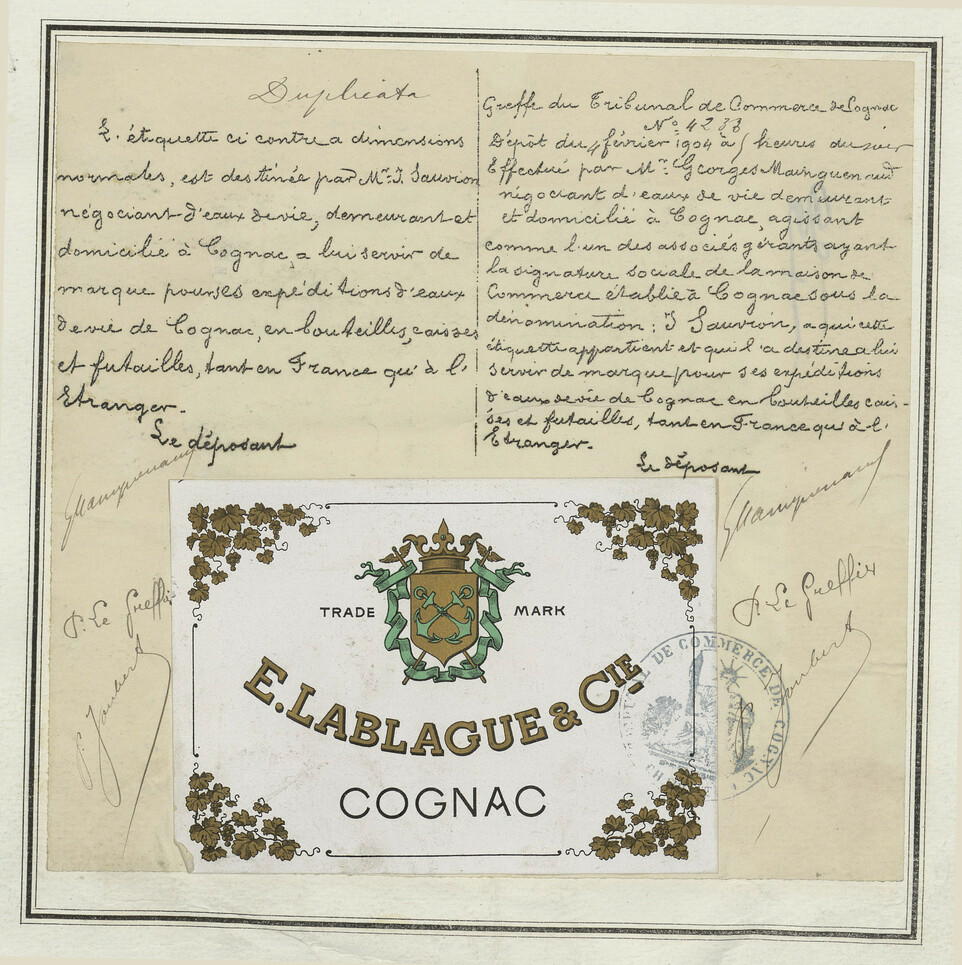 Duplicata
L'étiquette ci contre a dimensions
normales, est destinée par Mr. J. Sauvion
négociant d'eaux de vie, demeurant et
domicilié à Cognac, a lui servir de
marque pour ses expéditions d'eaux
de vie de Cognac, en bouteilles, caisses
et futailles, tant en France qu'à l'
Etranger.
Le déposant
GMainguenaud
P. Le Greffier
Joubert
Greffe du Tribunal de Commerce de Cognac
No. 4233
Dépôt du 4 février 1904 à 5 heures du soir
Effectué par Mr. Georges Mainguenaud
négociant d'eaux de vie demeurant
et domicilié à Cognac, agissant
comme l'un des associés gérants ayant
la signature sociale de la maison de
Commerce établie à Cognac sous la
dénomination : J Sauvion, a qui cette
étiquette appartient et qui l'a destine a lui
servir de marque pour ses expéditions
d'eaux de vie de Cognac en bouteilles cais-
ses et futailles, tant en France qu'à l'
Etranger.
Le déposant
GMainguenaud
P. Le Greffier
Joubert
TRADE MARK
E. LABLAGUE & CIE
COGNAC
DE COMMERCE DE COGNAC